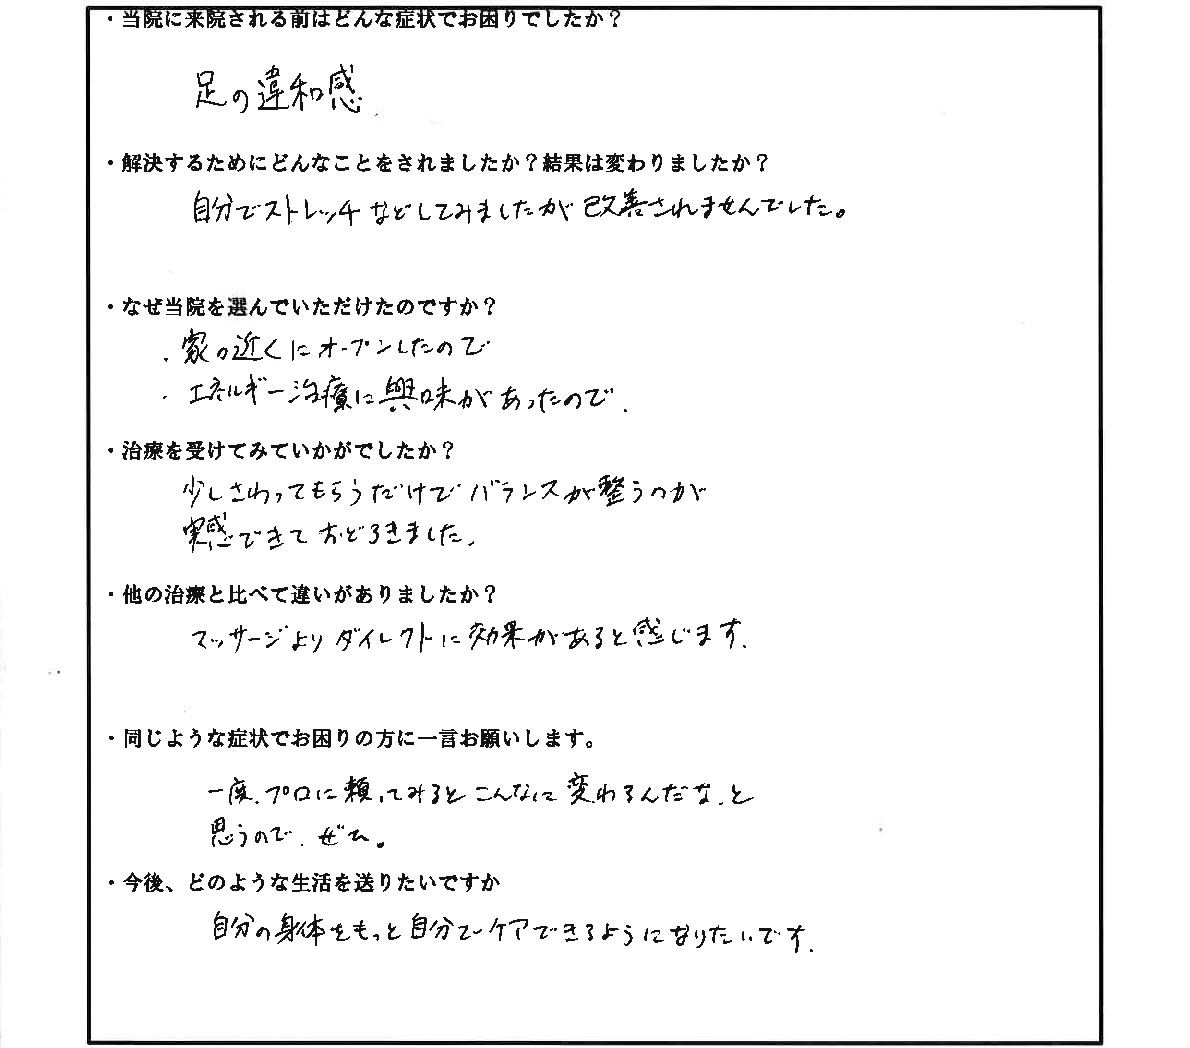 ・当院に来院される前はどんな症状でお困りでしたか？
足の違和感
・解決するためにどんなことをされましたか？結果は変わりましたか？
自分でストレッチなどしてみましたが改善されませんでした。
・なぜ当院を選んでいただけたのですか？
・家の近くにオープンしたので
・エネルギー治療に興味があったので.
・治療を受けてみていかがでしたか？
少しさわってもらうだけでバランスが整うのが
実感できておどろきました.
・他の治療と比べて違いがありましたか？
マッサージよりダイレクトに効果があると感じます.
・同じような症状でお困りの方に一言お願いします。
一度、プロに頼ってみるとこんなに変わるんだな、と
思うので、ぜひ。
・今後、どのような生活を送りたいですか
自分の身体をもっと自分でケアできるようになりたいです.